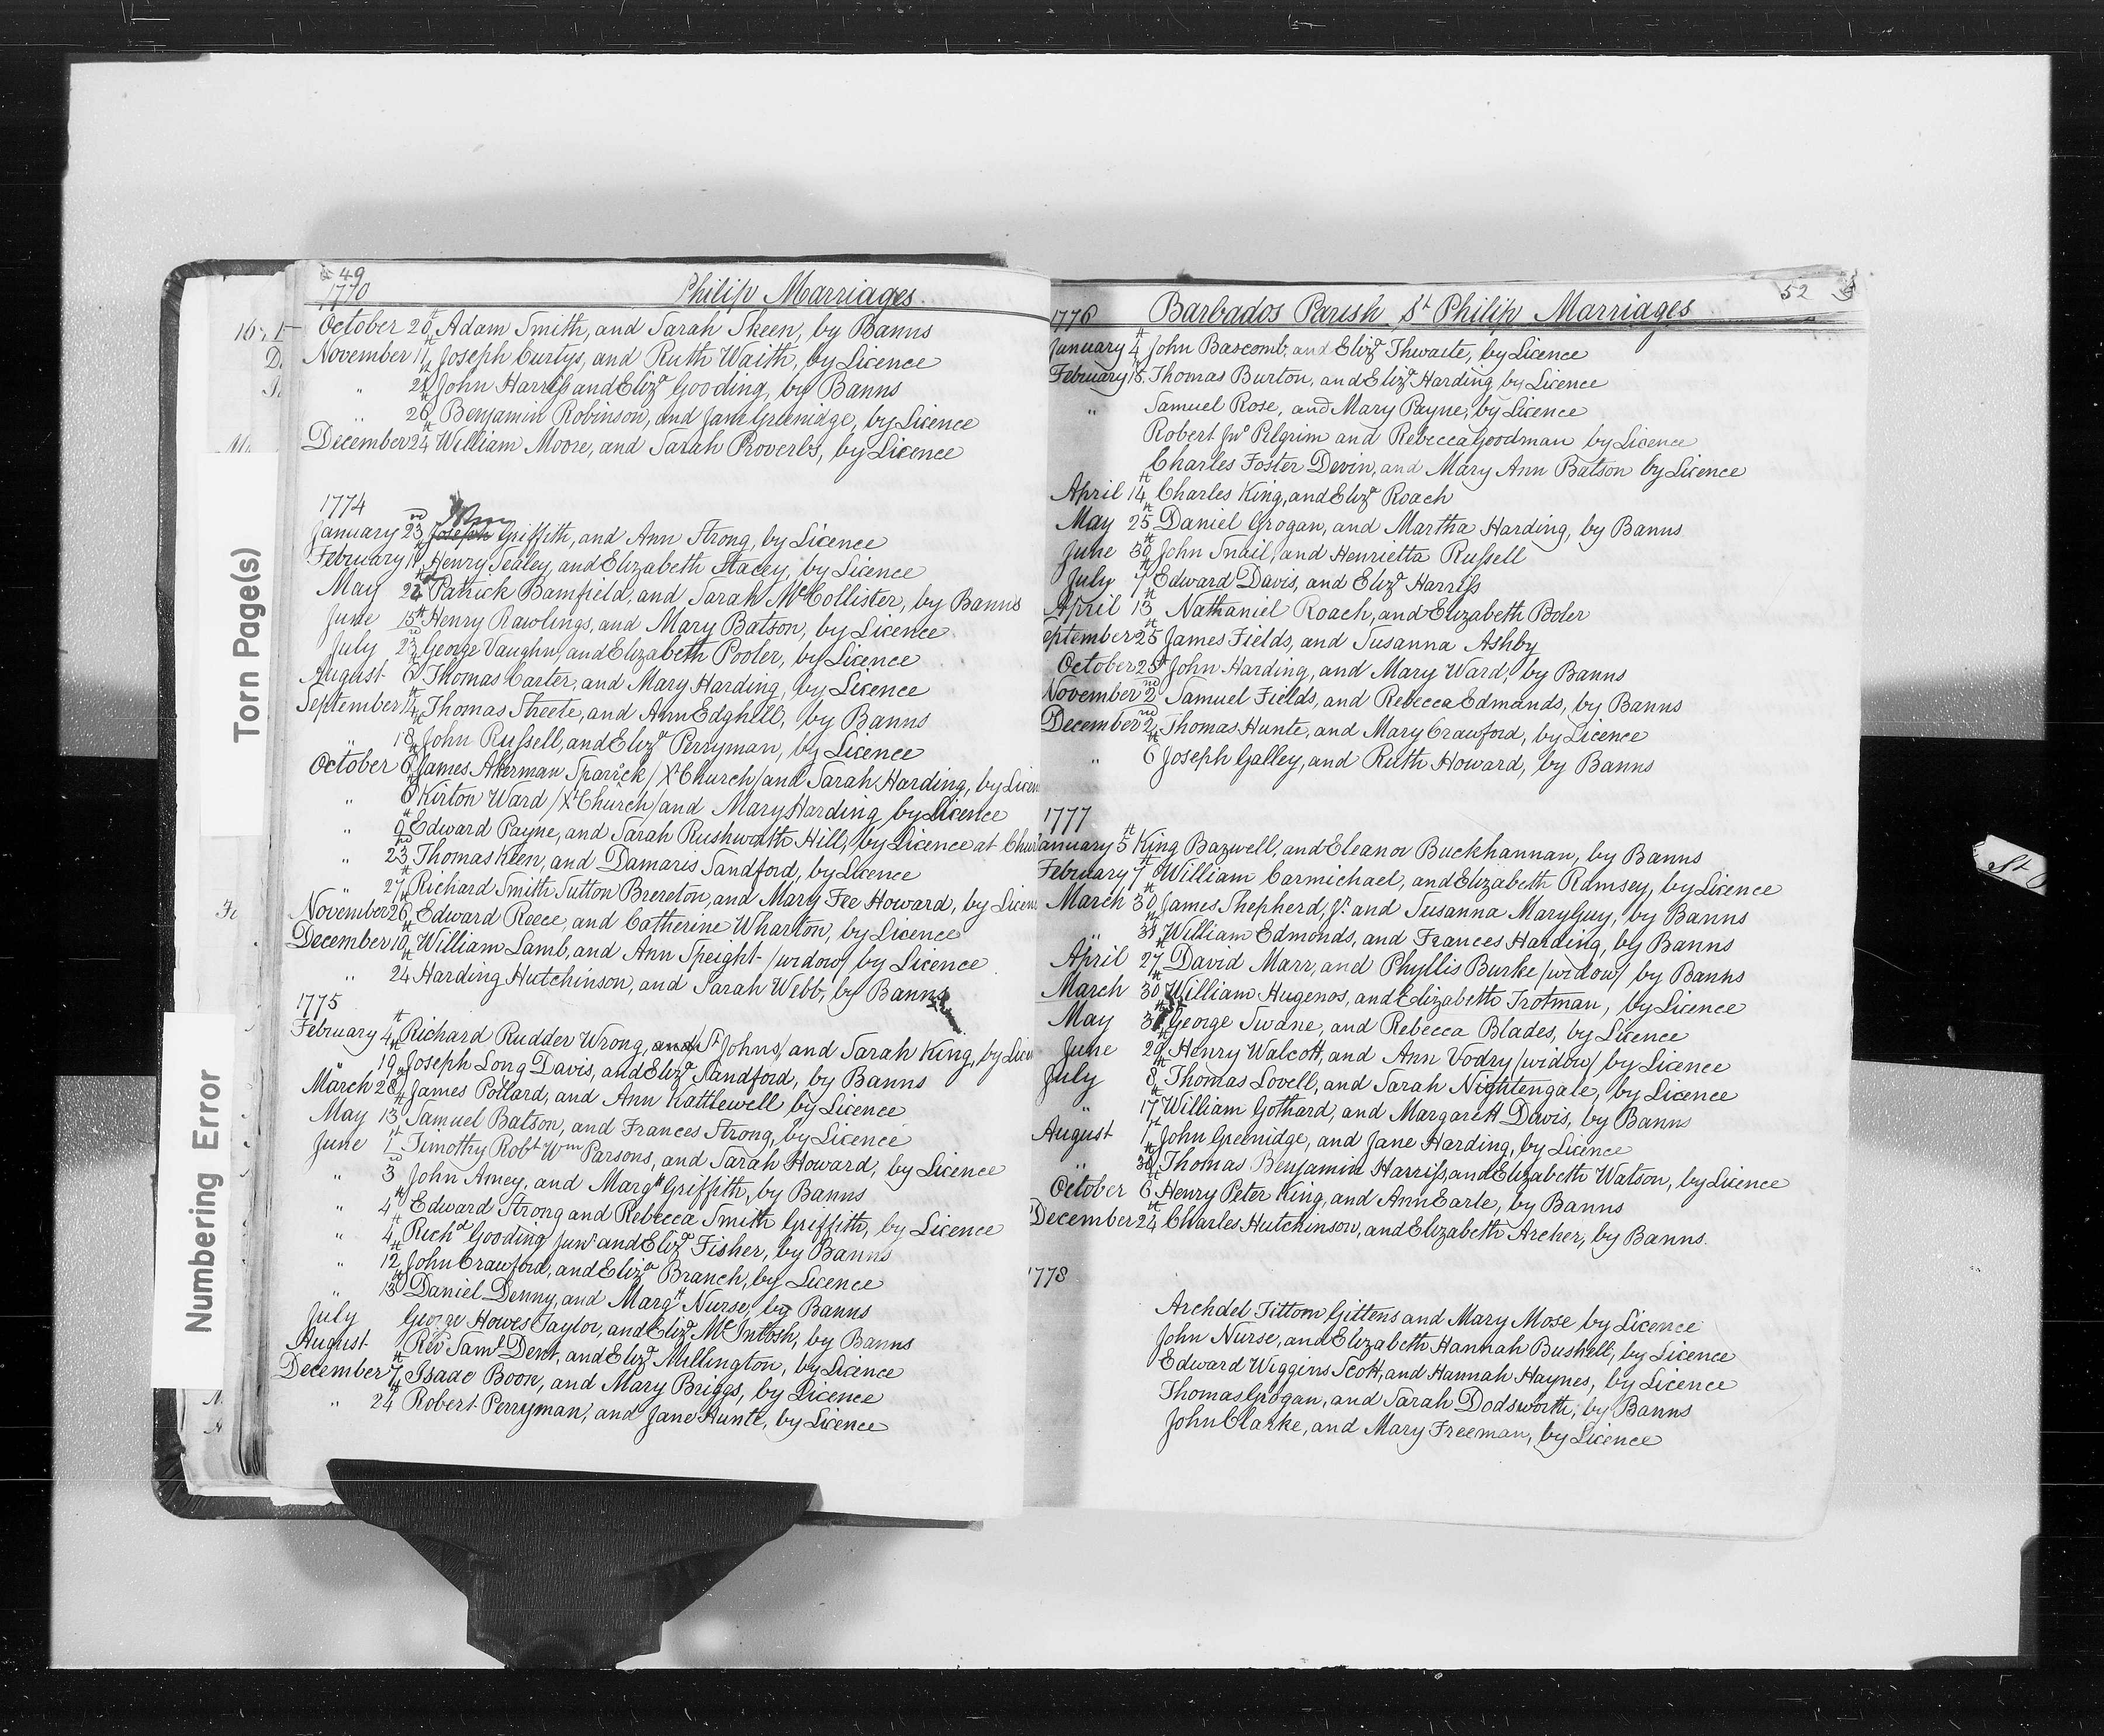 49
1770
Philip Marriages.
October 20th Adam Smith, and Sarah Skeen, by Banns
November 11th Joseph Curtys, and Ruth Waith, by Licence
" John Harriss and Elizth Gooding, by Banns
" 26th Benjamin Robinson, and Jane Greenidge, by Licence
December 24th William Moore, and Sarah Proverbs, by Licence
1774
January 23rd Joseph Griffith, and Ann Strong, by Licence
February Henry Sealey, and Elizabeth Stacey, by Licence
May Patrick Bamfield, and Sarah McCollister, by Banns
June 15th Henry Rawlings, and Mary Batson, by Licence
July 23rd George Vaughn, and Elizabeth Pooler, by Licence
August 6th Thomas Carter, and Mary Harding, by Licence
September Thomas Streete, and Ann Edghill, by Banns
" 18th John Russell, and Elizth Perryman, by Licence
October 6th James Akerman Sparrick / Xt Church / and Sarah Harding, by Licen
" 8th Kirton Ward / Xt Church / and Mary Harding by Licence
" 9th Edward Payne, and Sarah Rushworth Hill, by Licence at Chur
" 23rd Thomas Keen, and Damaris Sandford, by Licence
" 27th Richard Smith Sutton Brereton, and Mary Fee Howard, by Licen
November 26th Edward Reece, and Catherine Wharton, by Licence
December 10th William Lamb, and Ann Speight / widow / by Licence
" 24th Harding Hutchinson, and Sarah Webb, by Banns
1775
February 4th Richard Rudder Wrong, and / St Johns / and Sarah King, by Lice
19th Joseph Long Davis, and Elizth Sandford, by Banns
March 28th James Pollard, and Ann Kattlewell by Licence
May 13th Samuel Batson, and Frances Strong, by Licence
June 1st Timothy Robt Wm Parsons, and Sarah Howard, by Licence
" 3rd John Amey, and Margtt Griffith, by Banns
" 4th Edward Strong and Rebecca Smith Griffith, by Licence
" 4th Richd Gooding Junr and Elizth Fisher, by Banns
" 12th John Crawford, and Elizth Branch, by Licence
" Daniel Denny, and Margtt Nurse, by Banns
July George Howes Taylor, and Elizth McIntosh, by Banns
August Revd Saml Dent, and Elizth Millington, by Licence
December 7th Isaac Boon, and Mary Briggs, by Licence
" 24th Robert Perryman, and Jane Hunte, by Licence
Torn Page(s)
Numbering Error
52
1776 Barbados Parish St Philip Marriages
January 4th John Bascomb, and Elizth Thwaite, by Licence
February 18. Thomas Burton, and Elizth Harding by Licence
" Samuel Rose, and Mary Payne, by Licence
Robert Jno Pilgrim and Rebecca Goodman by Licence
Charles Foster Devin, and Mary Ann Batson by Licence
April 14th Charles King, and Elizth Roach
May 25th Daniel Grogan, and Martha Harding, by Banns
June 30th John Snail, and Henrietta Russell
July 7th Edward Davis, and Elizth Harriss
April 13th Nathaniel Roach, and Elizabeth Pooler
eptember 25th James Fields, and Susanna Ashby
October 25th John Harding, and Mary Ward, by Banns
November 2nd Samuel Fields, and Rebecca Edmands, by Banns
December 2nd Thomas Hunte, and Mary Crawford, by Licence
" 6th Joseph Galley, and Ruth Howard, by Banns
1777
anuary 5th King Bazwell, and Eleanor Buckhannan, by Banns
February 7th William Carmichael, and Elizabeth Ramsey, by Licence
March 30th James Shepherd, Jr. and Susanna Mary Guy, by Banns
" William Edmonds, and Frances Harding, by Banns
April 27th David Marr, and Phyllis Burke / widow / by Banns
March 30th William Hugenos, and Elizabeth Trotman, by Licence
May George Swane, and Rebecca Blades, by Licence
June 29th Henry Walcott, and Ann Vodry / widow / by Licence
July 8th Thomas Lovell, and Sarah Nightengale, by Licence
" 17th William Gothard, and Margarett Davis, by Banns
August 1st John Greenidge, and Jane Harding, by Licence
" Thomas Benjamin Harriss, and Elizabeth Watson, by Licence
October 6th Henry Peter King, and Ann Earle, by Banns
December 24th Charles Hutchinson, and Elizabeth Archer, by Banns.
1778
Archdel Tittom Gittens and Mary Mose by Licence
John Nurse, and Elizabeth Hannah Bushell, by Licence
Edward Wiggins Scott, and Hannah Haynes, by Licence
Thomas Grogan, and Sarah Dodsworth, by Banns
John Clarke, and Mary Freeman, by Licence
St